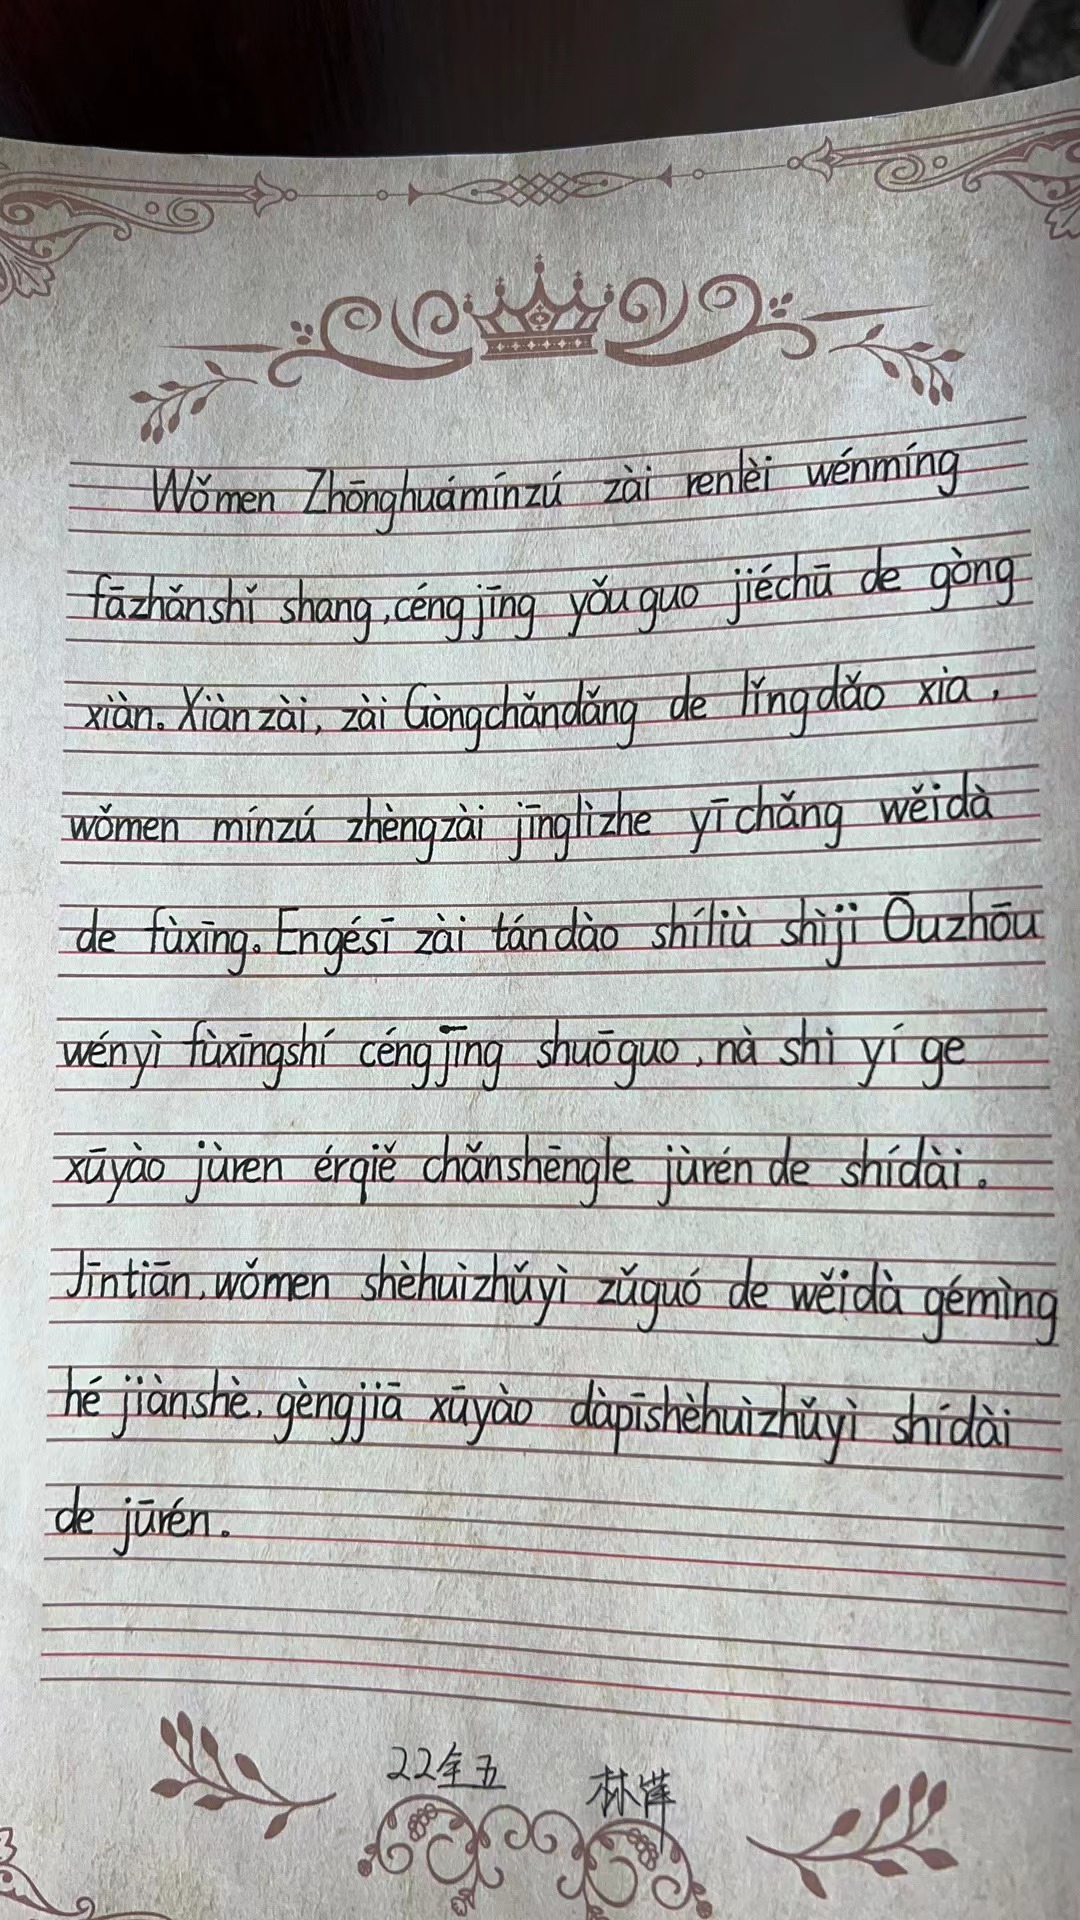 Wǒmen Zhōnghuámínzú zài renlèi wénmíng
fāzhǎnshǐ shang,céngjīng yǒuguo jiéchū de gòng
xiàn。Xiànzài, zài Gòngchǎndǎng de lǐngdǎo xia,
wǒmen mínzú zhèngzài jīnglìzhe yīchǎng wěidà
de fùxīng。Engésī zài tándào shíliù shìji Ōuzhōu
wényì fùxīngshí céngjīng shuōguo,nà shì yí ge
xūyào jùren érqiě chǎnshēngle jùrén de shídài。
Jīntiān,wǒmen shèhuìzhǔyì zǔguó de wěidà gémìng
hé jiànshè,gèngjiā xūyào dàpīshèhuìzhǔyì shídài
de jūrén。
22年五
林